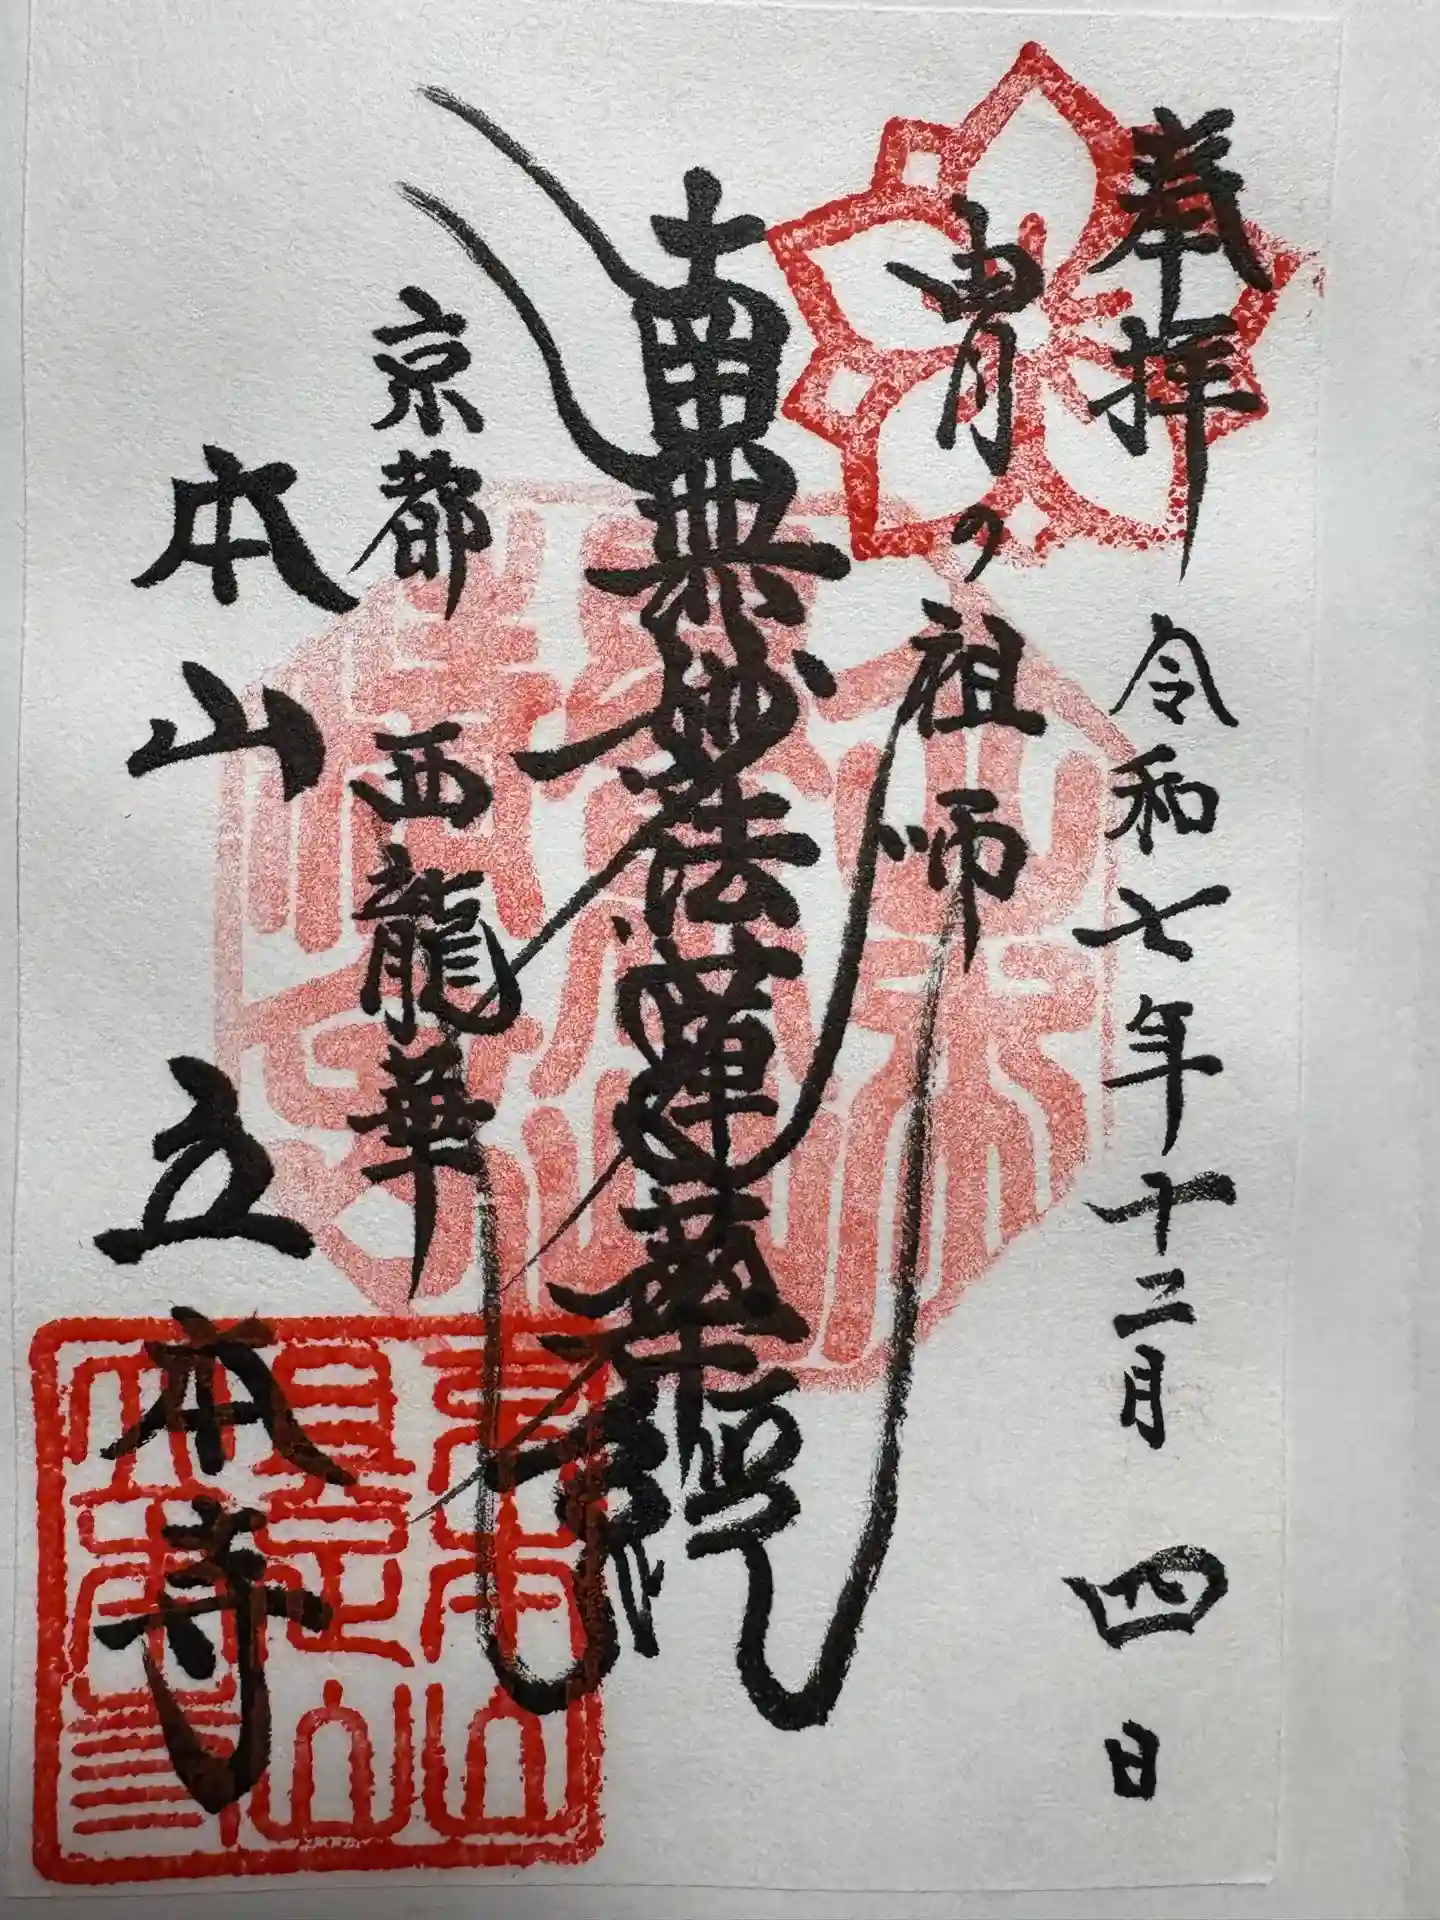 奉拝 令和七年十二月四日
冑の祖師
南無妙法蓮華經
京都 西龍華
本山 立本寺